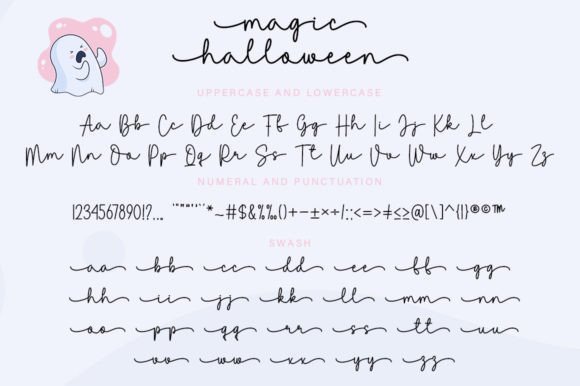 magic
halloween
UPPERCASE AND LOWERCASE
Aa Bb Cc Dd Ee Ff Gg Hh Ii Jj Kk Ll
Mm Nn Oo Pp Qq Rr Ss Tt Uu Vv Ww Xx Yy Zz
NUMERAL AND PUNCTUATION
1234567890!?... '"""''*~#$&%‰()+-±×÷/:;<=>≠≤≥@[\]^{|}®©™
SWASH
aa bb cc dd ee ff gg
hh ii jj kk ll mm nn
oo pp qq rr ss tt uu
vv ww xx yy zz